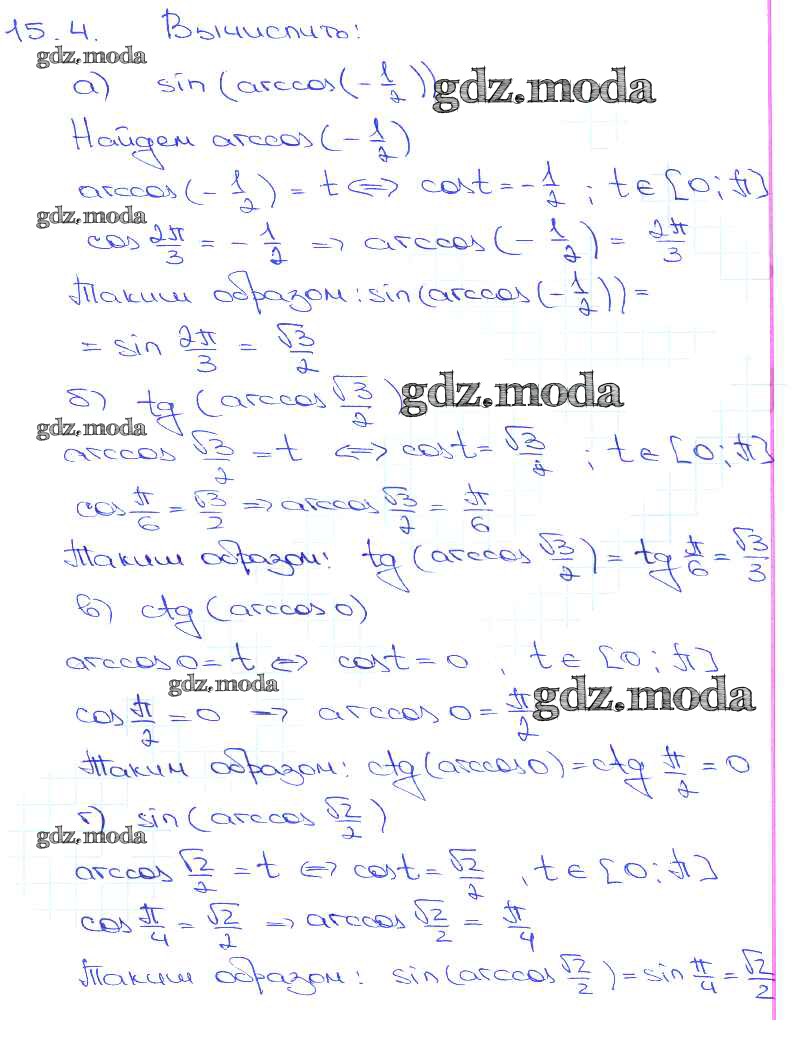 15.4. Вычислить:
gdz.moda
а) sin(arccos(-1/2)) gdz.moda
Найдем arccos(-1/2)
arccos(-1/2) = t <=> cost = -1/2 ; t ∈ [0; π]
gdz.moda
cos 2π/3 = -1/2 => arccos(-1/2) = 2π/3
Таким образом: sin(arccos(-1/2)) =
= sin 2π/3 = √3/2
б) tg (arccos √3/2) gdz.moda
gdz.moda
arccos √3/2 = t <=> cost = √3/2 ; t ∈ [0; π]
cos π/6 = √3/2 => arccos √3/2 = π/6
Таким образом: tg (arccos √3/2) = tg π/6 = √3/3
в) ctg (arccos 0)
arccos 0 = t <=> cost = 0 , t ∈ [0; π]
gdz.moda
cos π/2 = 0 => arccos 0 = π/2 gdz.moda
Таким образом: ctg (arccos 0) = ctg π/2 = 0
г) sin (arccos √2/2)
gdz.moda
arccos √2/2 = t <=> cost = √2/2 , t ∈ [0; π]
cos π/4 = √2/2 => arccos √2/2 = π/4
Таким образом: sin(arccos √2/2) = sin π/4 = √2/2